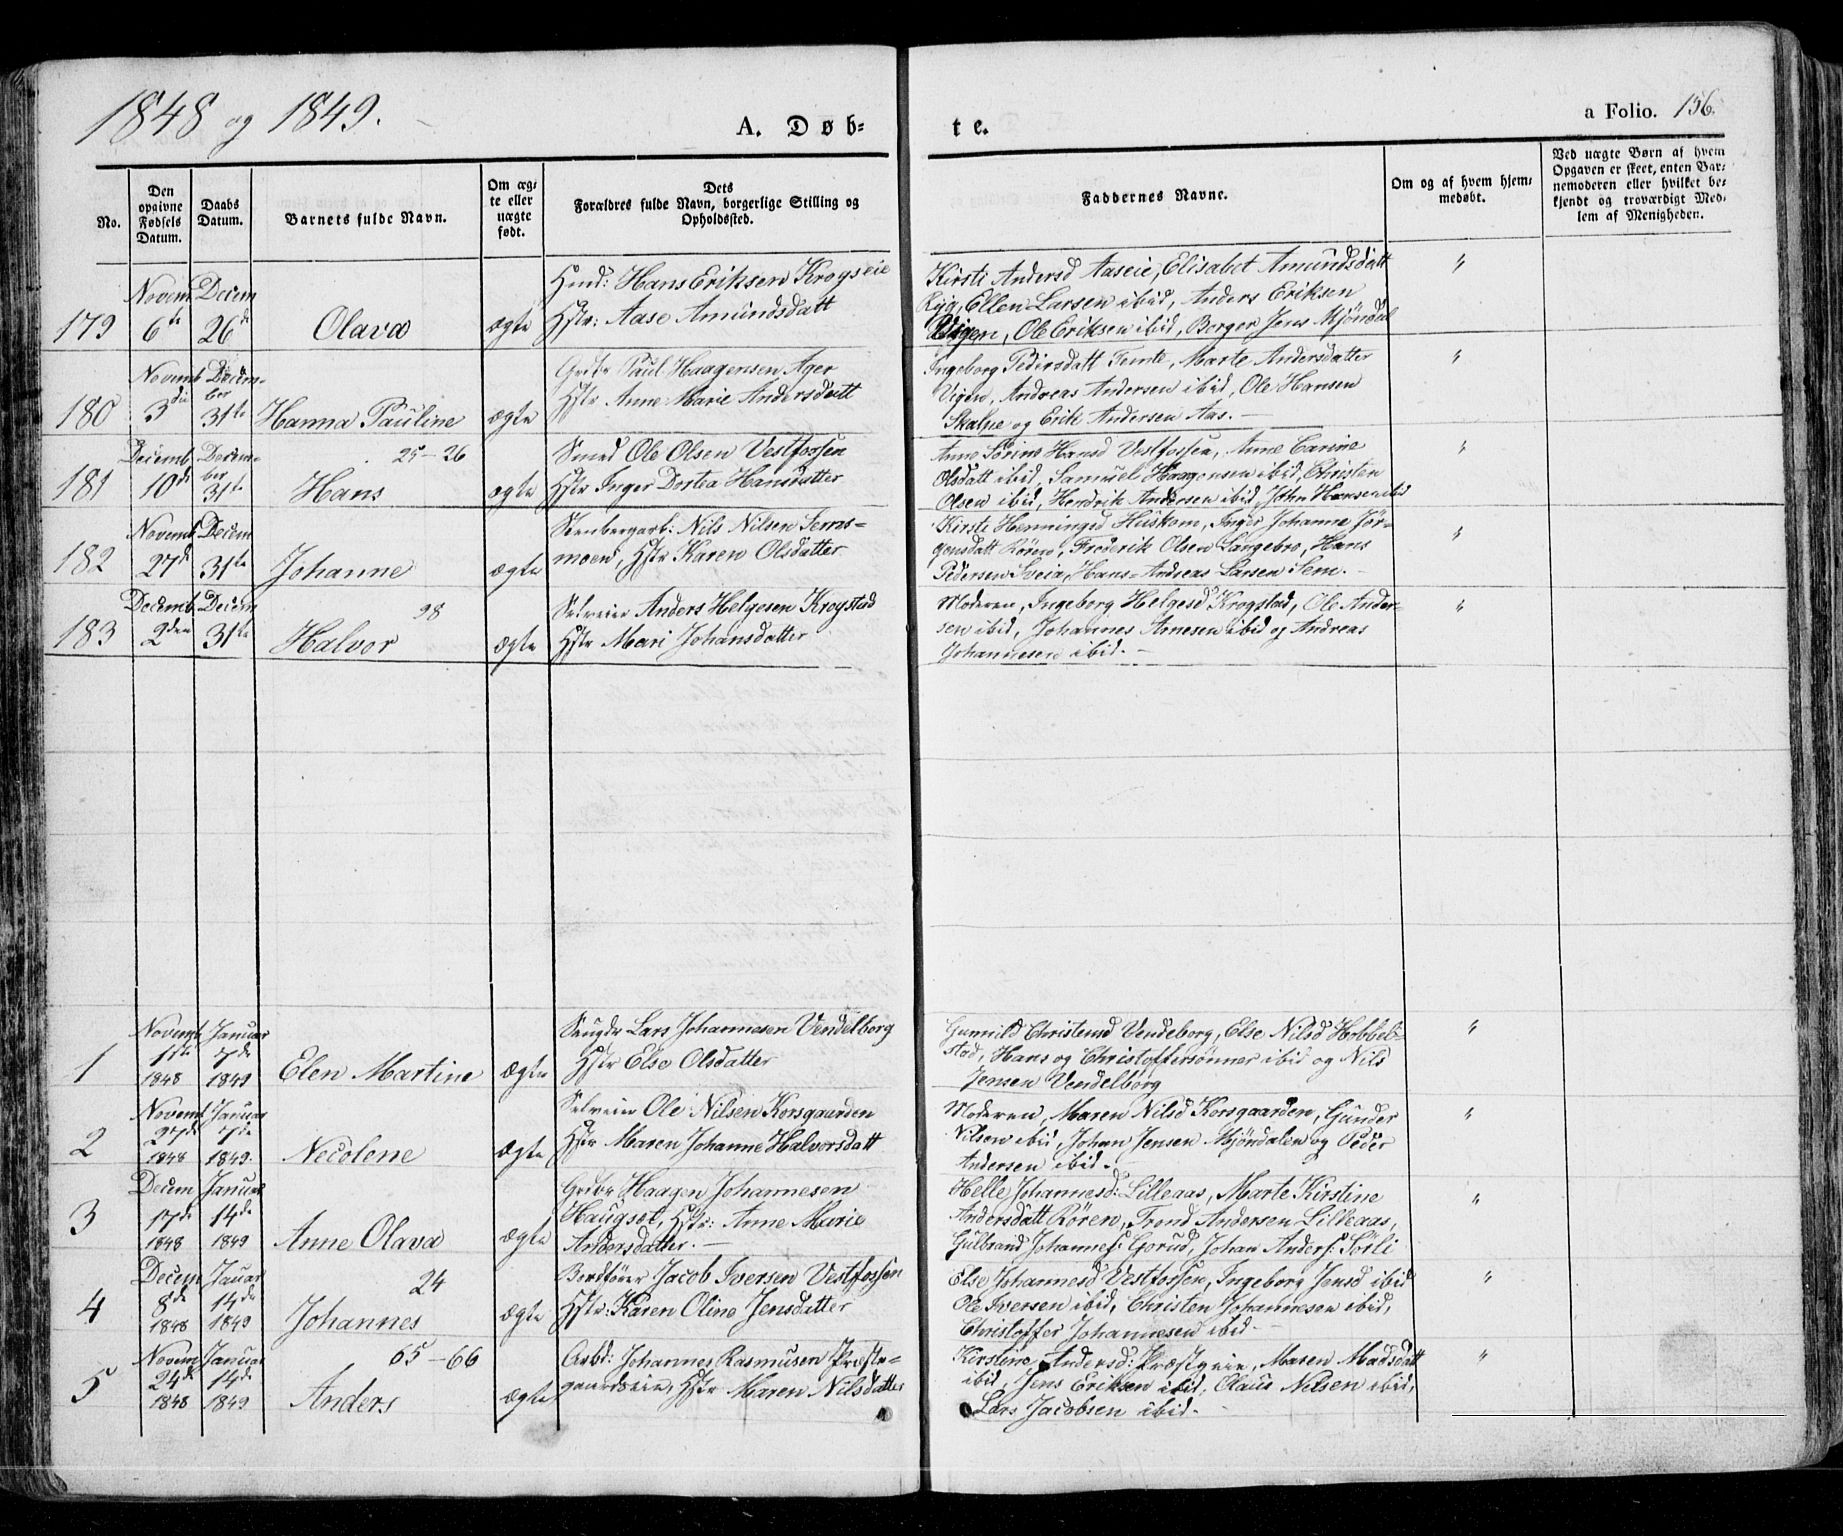 1848 og 1849.
A. Døb-
te.
a Folio. 156.
No.
Den opgivne Fødsels Datum.
Daabs Datum.
Barnets fulde Navn.
Om ægte eller uægte født.
Dets Forældres fulde Navn, borgerlige Stilling og Opholdssted.
Faddernes Navne.
Om og af hvem hjemmedøbt.
Ved uægte Børn af hvem Opgaven er skeet, enten Barnemoderen eller hvilket bekjendt og troværdigt Medlem af Menigheden.
179 Novem 6te Decem 26de Olava ægte
Huusm: Hans Eriksen Krogseie
Hstr: Aase Amundsdatt
Kirsti Andersd Aaseie, Elisabet Amundsdatt
Ryg, Ellen Larsen ibid, Anders Eriksen
Vigen, Ole Eriksen ibid, Borger Jens Mjøndal
"
180 Novemb 3die Decem-
ber 31te Hanna Pauline ægte
Grdbr Paul Haagensen Ager
Hstr Anne Marie Andersdatt
Ingeborg Pedersdatt Temte, Marte Andersdatter
Vigen, Andreas Andersen ibid, Ole Hansen
Skalpe og Erik Andersen Aas.
"
181 Decemb 10de Decem-
ber 31te 25-26
Hans ægte
Smed Ole Olsen Vestfossen
Hstr Inger Dortea Hansdatter
Anne Sørine Hansd Vestfossen, Anne Carine
Olsdatt ibid, Samuel Haagensen ibid, Christen
Olsen ibid, Hendrik Andersen ibid, John Hansen ibid
"
182 Novemb 27de Decem 31te Johanne ægte
Steenbergarb: Nils Nilsen Sems-
moend, Hstr Karen Olsdatter
Kirsti Henningsd Huskom, Inger Johanne Jør-
gensdatt Røren, Frederik Olsen Langebro, Hans
Pedersen Sveia, Hans Andreas Larsen Sem.
"
183 Decemb 2den Decem 31te 98
Halvor ægte
Selveier Anders Helgesen Krogstad
Hstr Mari Johansdatter
Moderen, Ingeborg Helgesd Krogstad, Ole Ander-
sen ibid, Johannes Arnesen ibid og Andreas
Johannesen ibid.
"
1 Novemb 1ste 1848 Januar 7de 1849 Elen Martine ægte
Lars Johannesen Vendelborg
Hstr Else Olsdatter
Gunnild Christensd Vendeborg, Else Nilsd Hobbel-
stad, Hans og Christoffersønner ibid og Nils
Jensen Vendelborg
"
2 Novemb 27de 1848 Januar 7de 1849. Necolene ægte
Selveier Ole Nilsen Korsgaarden
Hstr Maren Johanne Halvorsdatt
Moderen, Maren Nilsd Korsgaarden, Gunder
Nilsen ibid, Johan Jensen Mjøndalen og Peder
Andersen ibid.
"
3 Decem 17de 1848 Januar 14de 1849 Anne Olava ægte
Grdbr Haagen Johannesen
Haugset, Hstr: Anne Marie
Andersdatter.
Helle Johannesd: Lilleaas, Marte Kirstine
Andersdatt Røren, Trond Andersen Lilleaas,
Gulbrand Johannes: Gorud, Johan Anders: Sørli
"
4 Decem 8de 1848 Januar 14de 1849 24
Johannes ægte
Jacob Iversen Vestfossen
Hstr: Karen Oline Jensdatter
Else Johannesd Vestfossen, Ingeborg Jensd ibid
Ole Iversen ibid, Christen Johannesen ibid,
Christoffer Johannesen ibid.
"
5 Novem 24de 1848 Januar 14de 1849 65-66
Anders ægte
Arbd: Johannes Rasmusen Præste-
gaardseie, Hstr Maren Nilsdatter
Kirstine Andersd: Præstgeie, Maren Madsdatt
ibid, Jens Eriksen ibid, Olaus Nilsen ibid,
Lars Jacobsen ibid.
"